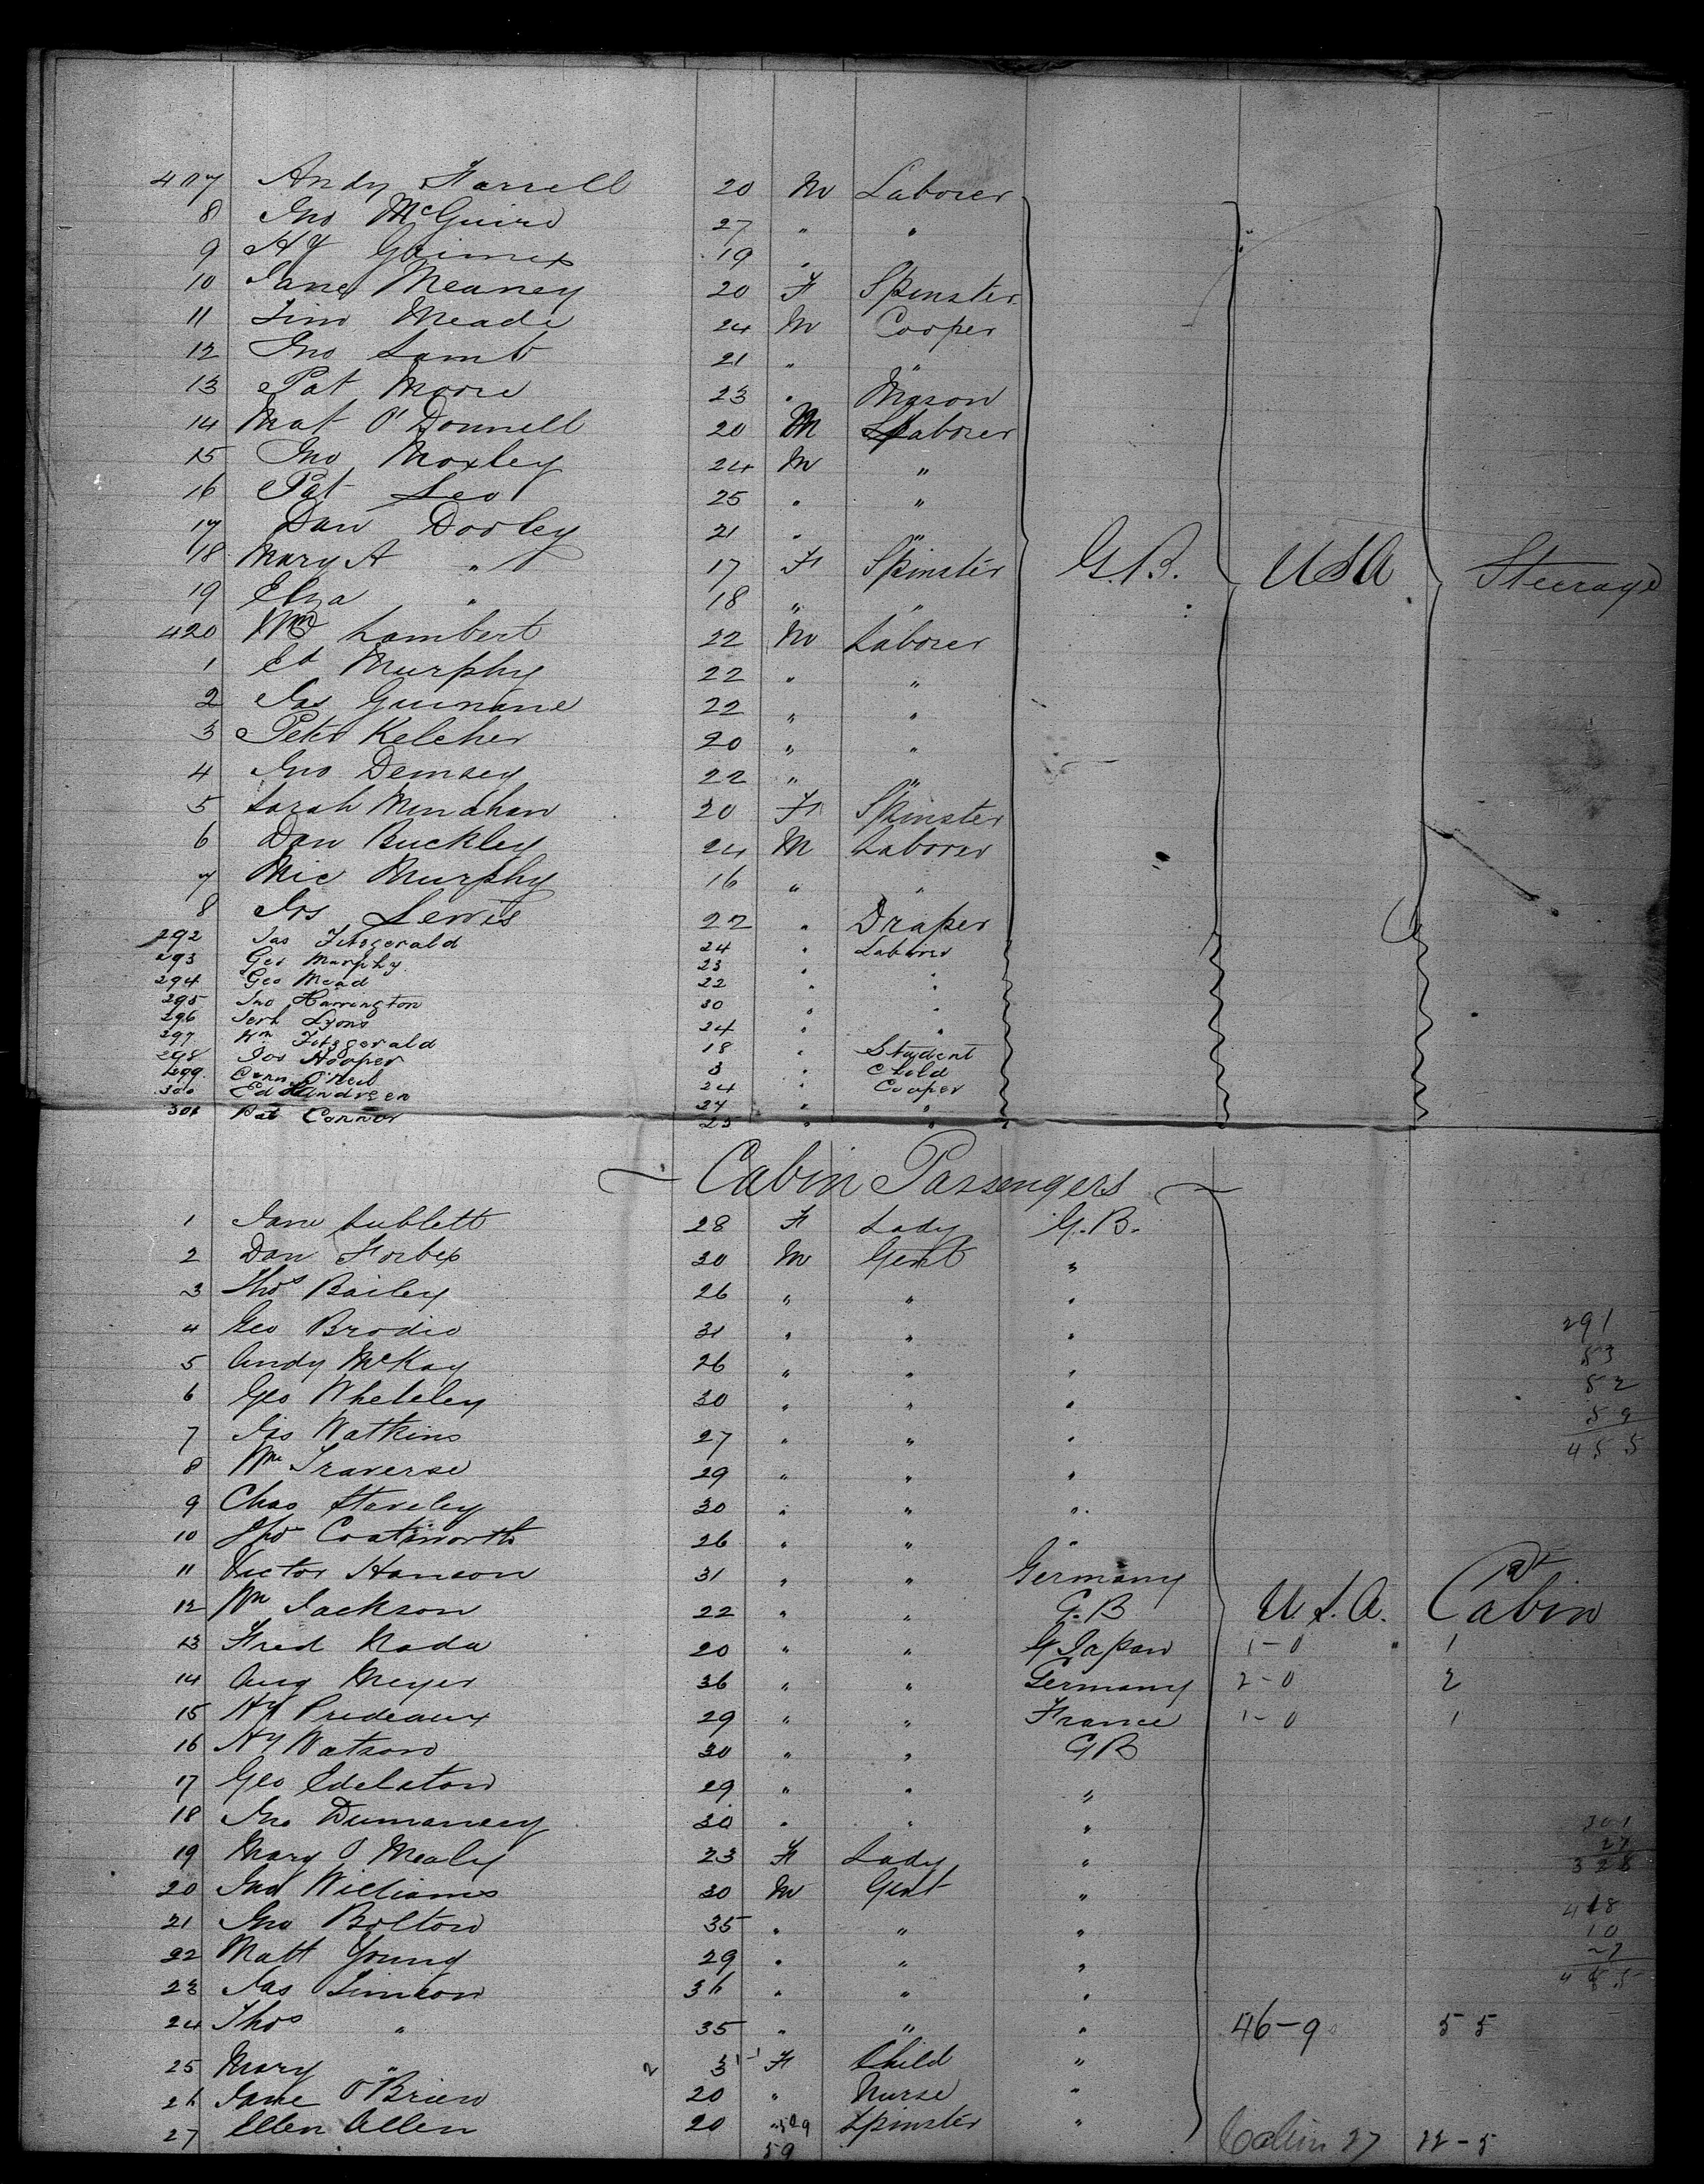 407 Andy Farrell 20 M Laborer
8 Jno McGuire 27 " "
9 Hy Grimes 19 "
10 Jane Meaney 20 F Spinster
11 Jim Meade 24 M Cooper
12 Jno Lamb 21 " "
13 Pat Moore 23 " Mason
14 Mat O'Donnell 20 M Laborer
15 Jno Moxley 24 M "
16 Pat Leo 25 " "
17 Dan Dooley 21 " "
18 Mary A " 17 F Spinster G.B. USA Steerage
19 Eliza " 18 " "
420 Wm Lambert 22 M Laborer
1 Ed Murphy 22 " "
2 Jas Guinane 22 " "
3 Peter Kelcher 20 " "
4 Jno Demsey 22 " "
5 Sarah Minahan 20 F Spinster
6 Dan Buckley 24 M Laborer
7 Mic Murphy 16 " "
8 Jos Lewis 22 " Draper
292 Jas Fitzgerald 24 " Laborer
293 Geo Murphy 23 " "
294 Geo Mead 22 " "
295 Jno Harrington 30 " "
296 Jerh Lyons 24 " "
297 Wm Fitzgerald 18 " Student
298 Jos Hooper 3 " Child
299 Corn O'Neil 24 " Cooper
300 Ed Hindreen 24 " "
301 Pat Connor 23 " "
Cabin Passengers
1 Jane Lublett 28 F Lady G.B.
2 Dan Forbes 30 M Gent "
3 Thos Bailey 26 " " "
4 Geo Brodie 31 " " "
5 Andy McKay 26 " " "
6 Geo Wheteley 30 " " "
7 Jas Watkins 27 " " "
8 Wm Traverse 29 " " "
9 Chas Staveley 30 " " "
10 Jno Coatsworth 26 " " "
11 Victor Hanson 31 " " Germany
12 Wm Jackson 22 " " G.B U.S.A. Cabin
13 Fred Nada 20 " " Japan 1-0 " 1
14 Aug Meyer 36 " " Germany 2-0 2
15 Hy Prideaux 29 " " France 1-0 1
16 Hy Watson 30 " " GB
17 Geo Edelston 29 " " "
18 Jno Dumaney 30 " " "
19 Mary O Mealy 23 F Lady "
20 Jno Williams 30 M Gent "
21 Jno Bolton 35 " " "
22 Matt Young 29 " " "
23 Jas Simeon 36 " " "
24 Thos " 35 " " " 46-9 55
25 Mary " 2 3 F Child "
26 Jane O'Brien 20 " Nurse "
27 Ellen Allen 20 " Spinster "
59 Cabin 27 22-5
291
53
52
59
455
301
27
328
418
10
27
455